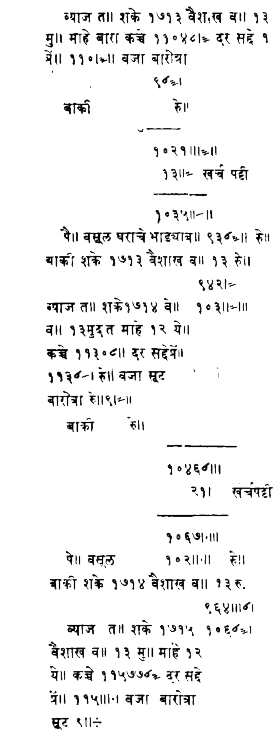 व्याज त॥ शके १७१३ वैशाख व॥ १३
मु॥ माहे बारा कच्चे ११०४८।= दर सद्दे १
प्रें॥ ११०।= वजा बारोत्रा
९८=।
बाकी रु॥
१०२१॥।=॥
१३॥= खर्च पट्टी
१०३५॥-॥
पै॥ वसूल घराचे भाड्याब॥ ९३८=॥ रु॥
बाकी शके १७१३ वैशाख व॥ १३ रु॥
९४२।=
व्याज त॥ शके१७१४ वै॥ १०३॥=॥
व॥ १३मुदत माहे १२ ये॥
कच्चे ११३०८॥ दर सद्देप्रें॥
११३८-। रु॥ वजा सूट
बारोत्रा रु॥९।=॥
बाकी रु॥
१०४६८॥।
२१। खर्चपट्टी
१०६७।॥
पै॥ वसूल १०२॥।॥ रु॥
बाकी शके १७१४ वैशाख व॥ १३ रु.
९६४॥।८।
व्याज त॥ शके १७१५ १०६८=।
वैशाख व॥ १३ मु॥ माहे १२
ये॥ कच्चे ११५७७८= दर सद्दे
प्रें॥ ११५॥।॥ वजा बारोत्रा
सूट ९॥÷